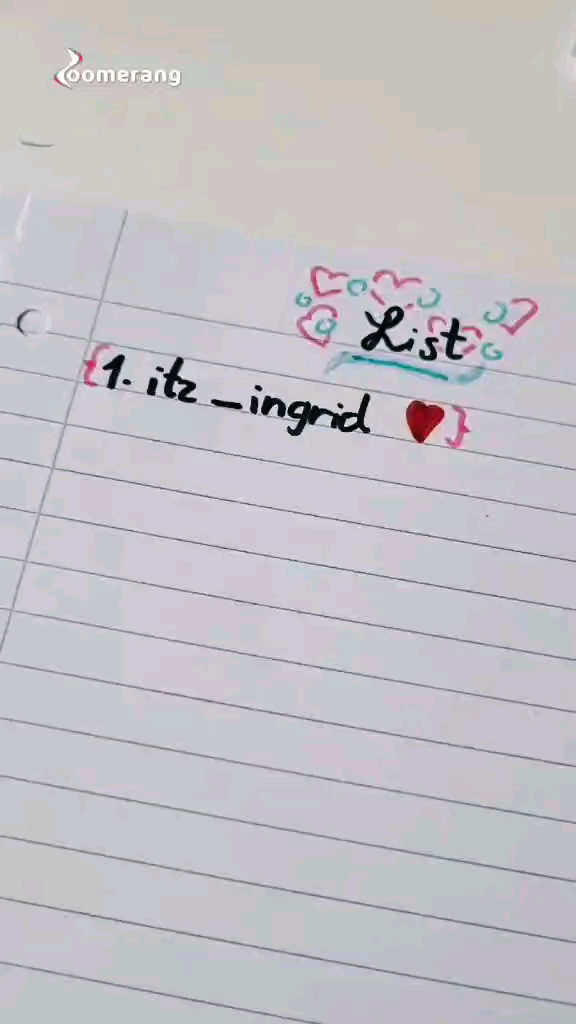 Zoomerang
List
{1. itz_ingrid ♥}